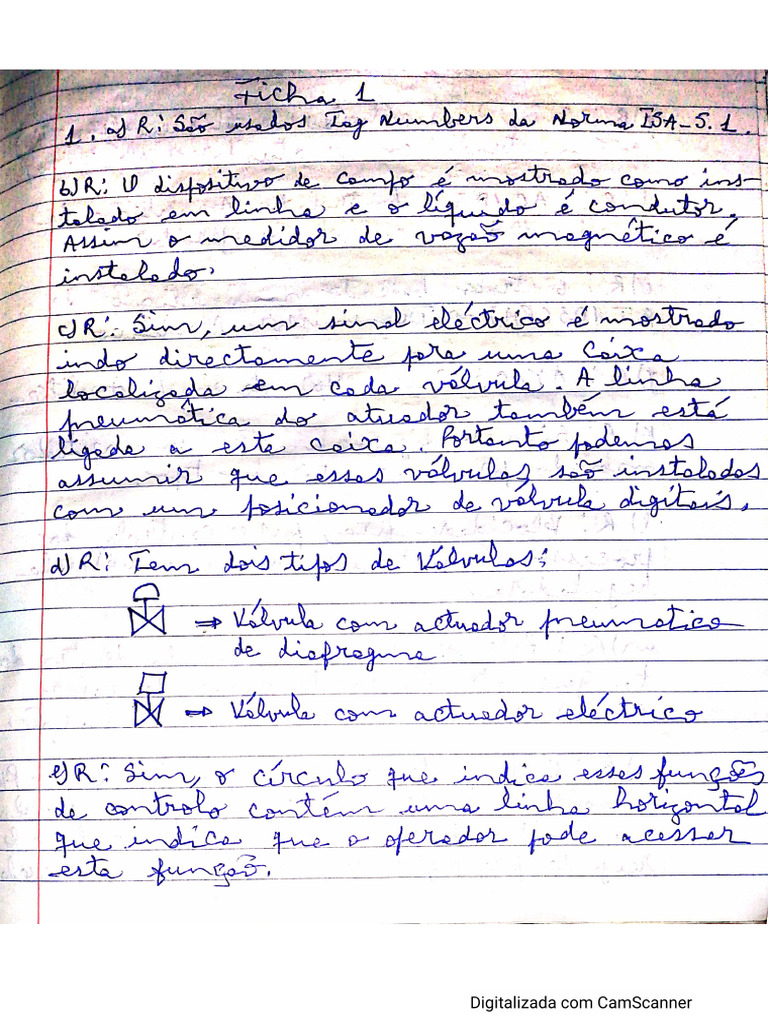 Ficha 1
1. a) R: São usados Tag Numbers da Norma ISA-5.1.
b) R: O dispositivo de campo é mostrado como ins-
talado em linha e o líquido é condutor.
Assim o medidor de vazão magnético é
instalado.
c) R: Sim, um sinal eléctrico é mostrado
indo directamente para uma caixa
localizada em cada válvula. A linha
pneumática do atuador também está
ligada a esta caixa. Portanto podemos
assumir que essas válvulas são instalados
com um posicionador de válvula digitais.
d) R: Tem dois tipos de Válvulas:
⇒ Válvula com actuador pneumatico
de diafragma
⇒ Válvula com actuador eléctrico
e) R: Sim, o círculo que indica esses funções
de controlo contém uma linha horizontal
que indica que o operador pode acessar
esta função.
Digitalizada com CamScanner